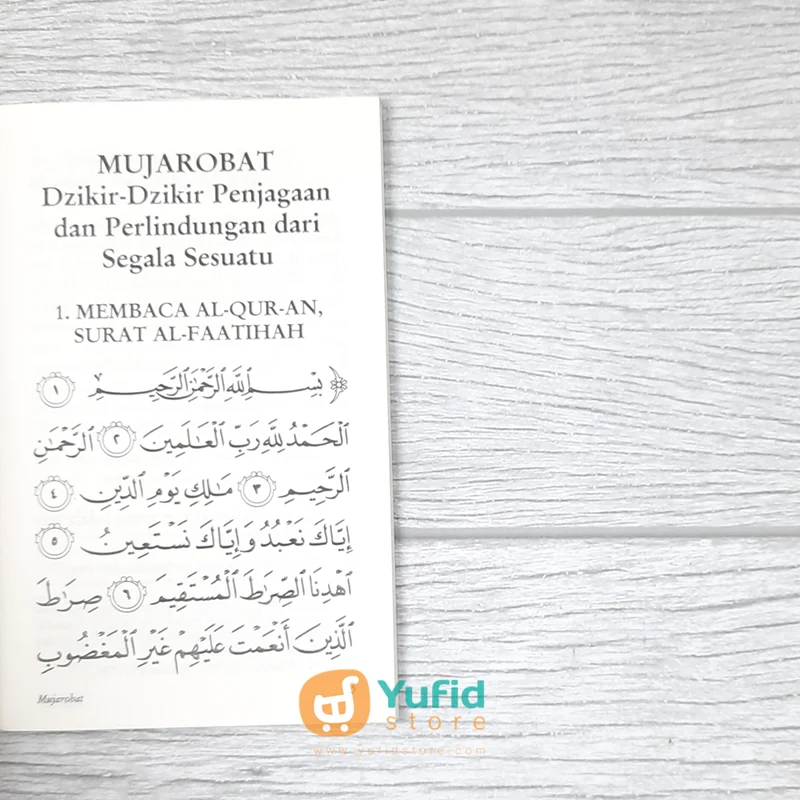 MUJAROBAT
Dzikir-Dzikir Penjagaan
dan Perlindungan dari
Segala Sesuatu
1. MEMBACA AL-QUR-AN,
SURAT AL-FAATIHAH
﴿ بِسْمِ ٱللَّهِ ٱلرَّحْمَٰنِ ٱلرَّحِيمِ ١
ٱلْحَمْدُ لِلَّهِ رَبِّ ٱلْعَٰلَمِينَ ٢ ٱلرَّحْمَٰنِ
ٱلرَّحِيمِ ٣ مَٰلِكِ يَوْمِ ٱلدِّينِ ٤
إِيَّاكَ نَعْبُدُ وَإِيَّاكَ نَسْتَعِينُ ٥
ٱهْدِنَا ٱلصِّرَٰطَ ٱلْمُسْتَقِيمَ ٦ صِرَٰطَ
ٱلَّذِينَ أَنْعَمْتَ عَلَيْهِمْ غَيْرِ ٱلْمَغْضُوبِ
Mujarobat
Yufid
store
www.yufidstore.com